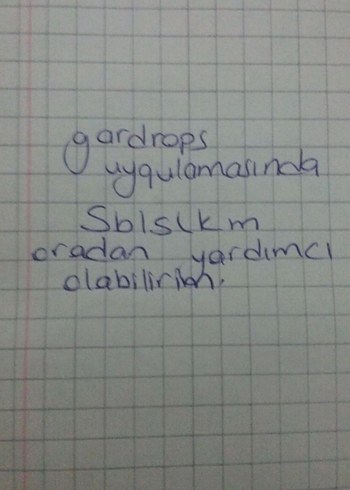 gardrops
uygulamasında
Sblslkm
oradan yardımcı
olabilirim.